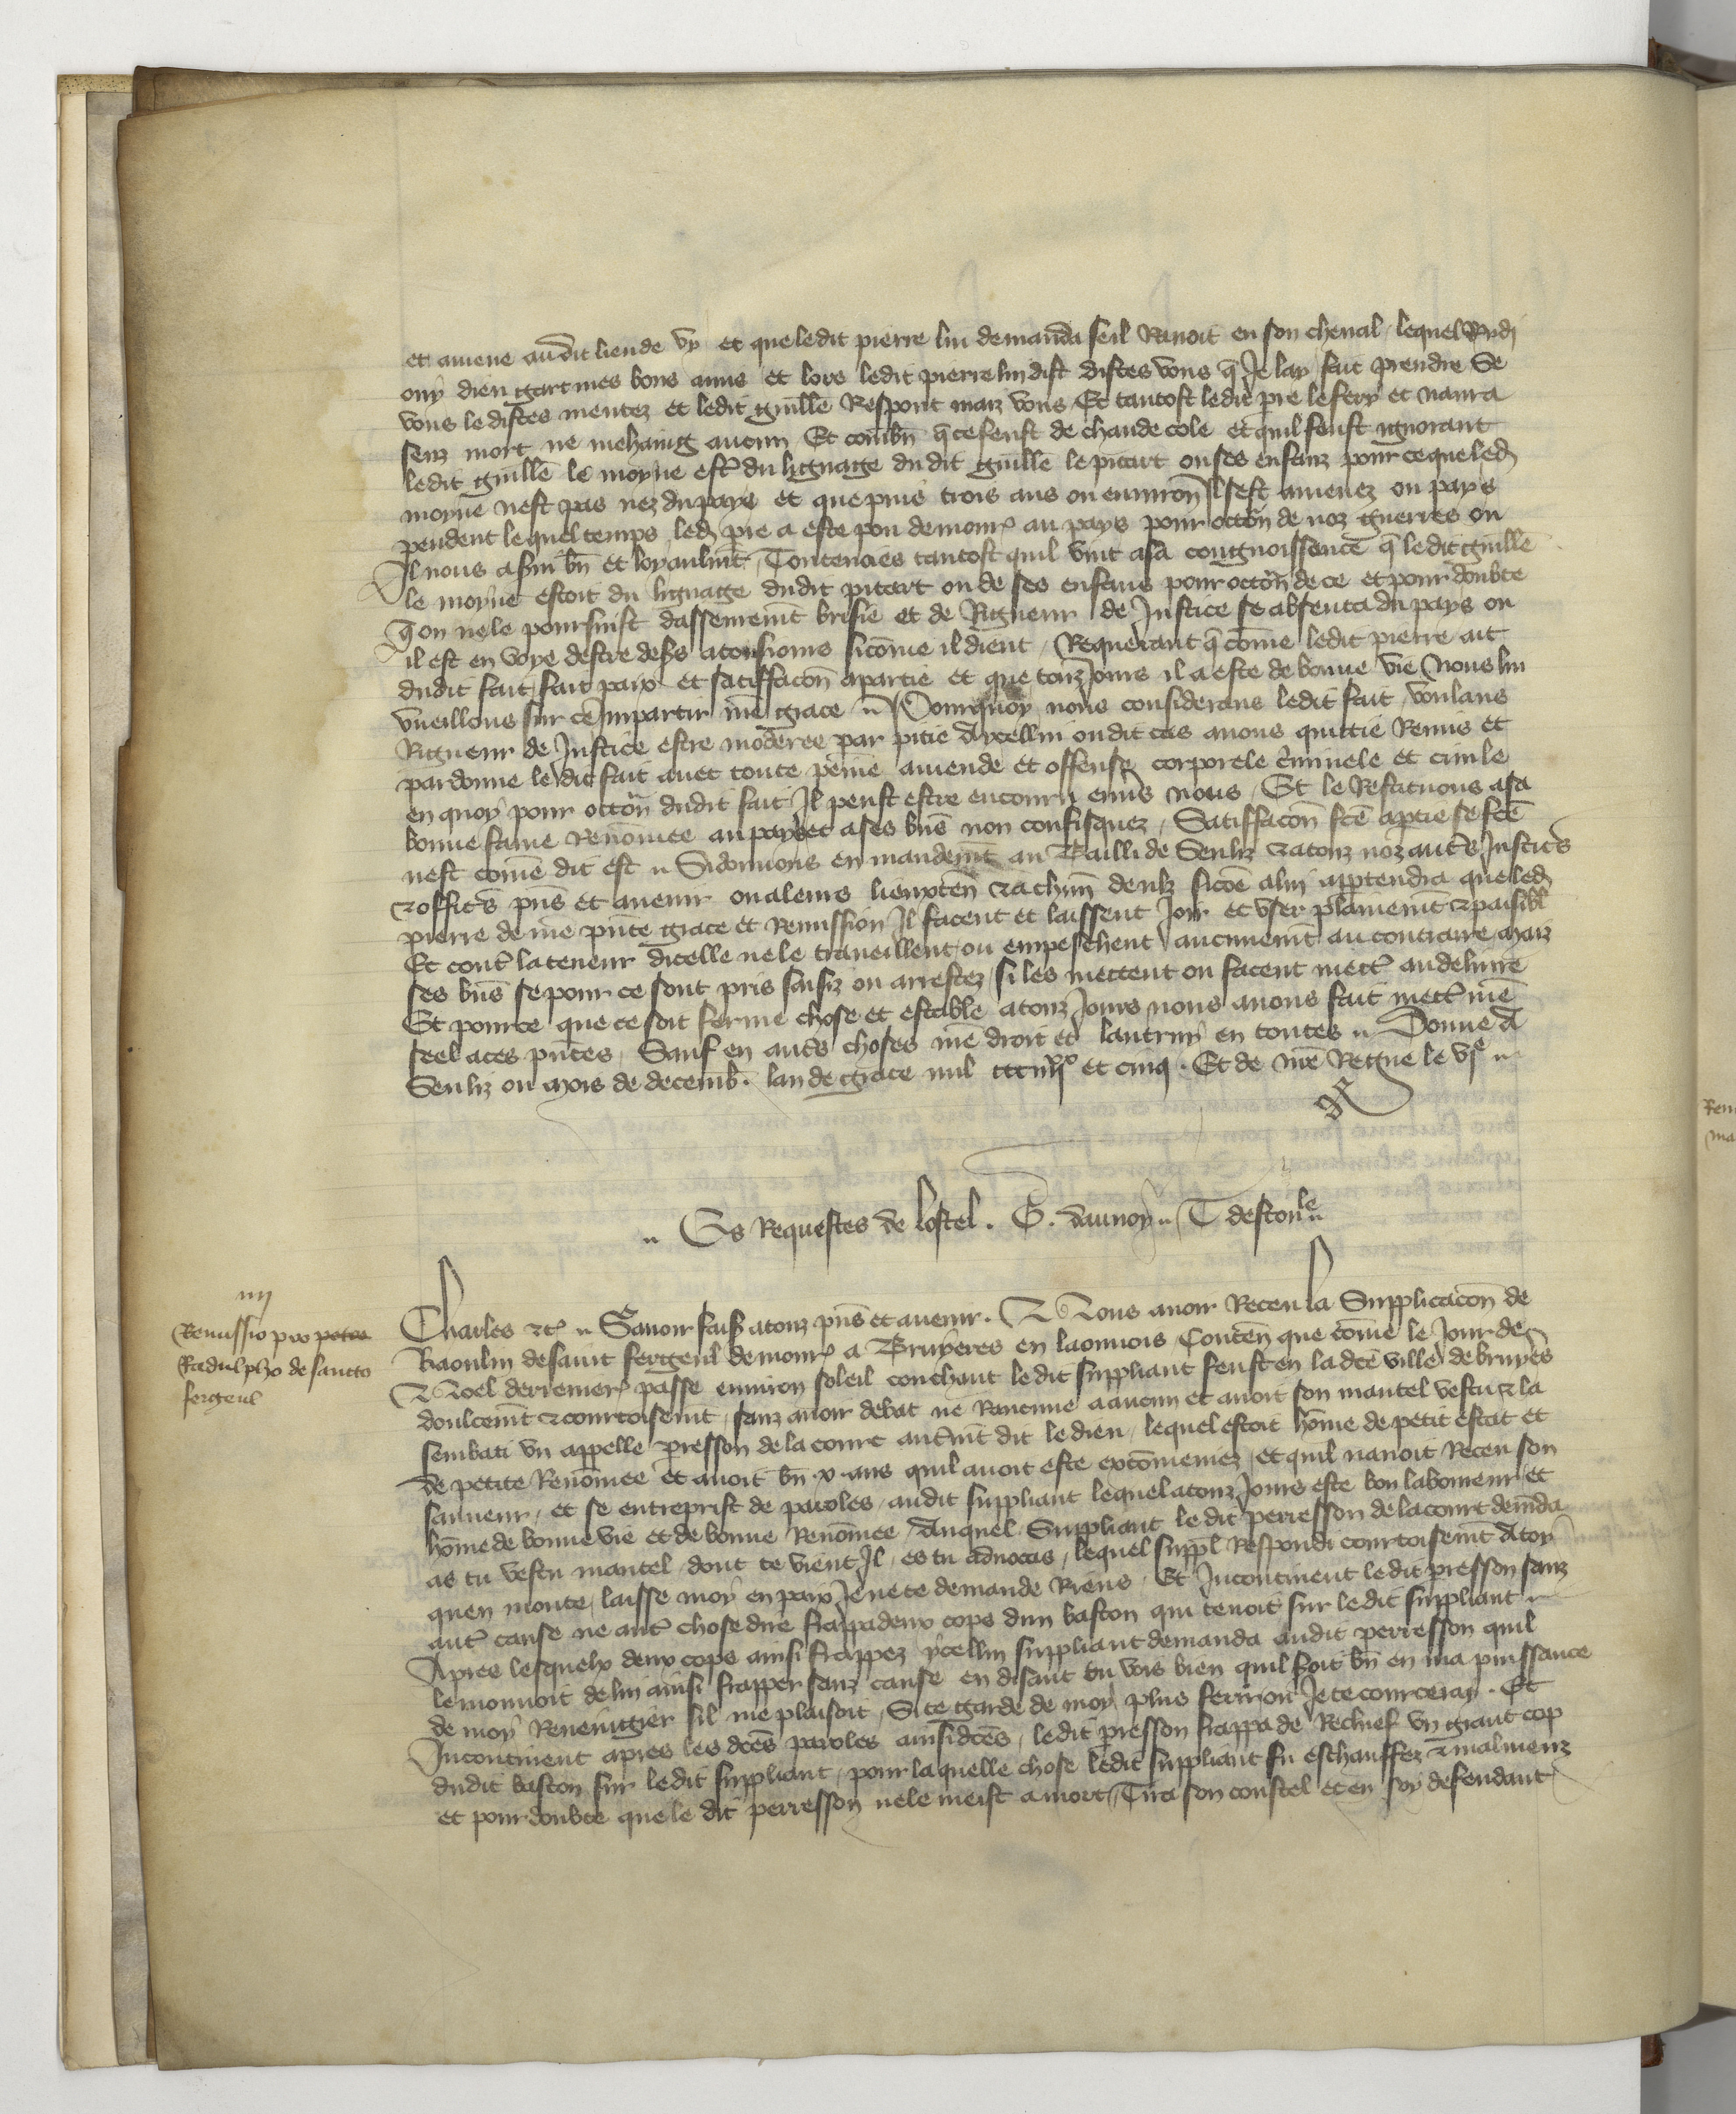 et amene audit lieu de vy et que ledit pierre lui demanda se il lavoit en son cheval, lequel
ouy dieu gart mes bons amis et lors ledit pierre lui dist distes vous q̃ Je lay fait prendre Se
vous le distes mentez et ledit guille Respont maiz vous Et tantost ledit pre le fery et navra
senz mort ne mehaing aucun Et combn̄ q̃ ce feust de chaude cole et quil feust ignorant
ledit guille le moyne estr̃ du lignage dudit guille le picart ou ses enfanz pour ce que led
moyne nest pas nez du pays et que puis trois ans ou environ Il sest amenez ou pays
pendent lequel temps led pre a este pou demour̃ au pays pour occoñ de noz guerres ou
Il nous a servi bn̄ et loyaulmt̃, Toutevoies tantost quil vint a sa congnoissence q̃ ledit guille
le moyne estoit du lignage dudit picart ou de ses enfans pour occoñ de ce et pour doubte
q̃ on ne le poursuist dassseuremt̃ brisie et de Rigueur de Justice se absenta du pays ou
il est en voye destre desers a tousiours sicõme il dient, Requerant q̃ cõme ledit pierre ait
dudit fait fait paix et satiffacõn a partie et que touz Jours il a este de bonne vie Nous lui
vueillons sur ce Impartir nr̃e grace Pourquoy nous considerans ledit fait, voulans
Rigueur de Justice estre moderee par pitie A ycellui oudit cas avons quittie Remis et
pardonne ledit fait avec toute peine amende et offense corporele cr̃iminele et civile
en quoy pour occoñ dudit fait Il peust estre encouru envs nous, Et le Restituons a sa
bonne fame Renõmee au pays et a ses biẽs non confisquez, Satiffacõn fcẽ a ptie se fcẽ
nest cõme dit est Si donnons en mandemt̃ au Bailli de Senliz et a touz noz autr̃s Justic̃rs
et offic̃rs pñs et avenir ou a leurs lieuxten̄ et a chm̃ deulx sicõe a lui apptendra que led
pierre de nr̃e pñte grace et Remission Il facent et laissent Joir et user plainemt̃ et paisibl̃
Et contr̃ la teneur dicelle ne le traveillent ou empeschent aucunemt̃ au contraire, maiz
ses biẽs se pour ce sont pris saisiz ou arrestez, si les mettent ou facent mectr̃ a delivre
Et pource que ce soit ferme chose et estable a touz Jours nous avons fait mectr̃ nr̃e
seel a ces pñtes, Sauf en autr̃s choses nr̃e droit et lautruy en toutes Donne a
Senliz ou mois de decemb̃. lan de grace mil ccc iiijxx et cinq. Et de nr̃e Regne le vje

Es Requestes de lostel. G. daunoy T destoule

iiij
Remissio pro petro
Radulpho de sancto
fergeul

Charles etc̃ Savoir faiß a touz pñs et avenir. Nous avoir Receu la Supplicacõn de
Raoulin de saint fergeul demour̃ a Bruyeres en laonnois, Conten̄ que cõme le Jour de
Noel derrenier̃ passe environ soleil couchant ledit suppliant feust en la dcẽ ville de bruyer̃s
doulcemt̃ et courtoisemt̃, sanz avoir debat ne Rancune a aucun et avoit son mantel vestu et la
sembati un appelle presson de la court autremt̃ dit le dieu, lequel estoit hõme de petit estat et
de petite Renõmee et avoit bn̄ .x. ans quil avoit este excõmeniez, et quil navoit Receu son
sauveur, et se entreprist de paroles, audit suppliant lequel a touz Jours este bon laboureur et
hõme de bonne vie et de bonne Renõmee, Auquel Suppliant ledit perresson de la court demãda
as tu vestu mantel dont te vient Il, es tu advocas, lequel suppl Respondi courtoisemt̃ A toy
quen monte, laisse moy en paix Je ne te demande Riens. Et Incontinent ledit presson sanz
autr̃ cause ne autr̃ chose dire frappa deux cops dun baston qui tenoit sur ledit suppliant
Apres lesquelx deux cops ainsi frappez ycellui suppliant demanda audit perresson quil
le mouvoit de lui ainsi frapper sanz cause en disant tu vois bien quil soit bn̄ en ma puissance
de moy Revengier sil me plaisoit, Si te garde de moy plus ferir ou Je te courceray. Et
Incontinent apres les dcẽs paroles ainsi dcẽs, ledit presson frappa de Rechief un grant cop
dudit baston sur ledit suppliant, pour laquelle chose ledit suppliant fu eschauffez et malmenz
et pour doubte que le dit perresson ne le meist a mort, Tira son coustel et en soy defendant